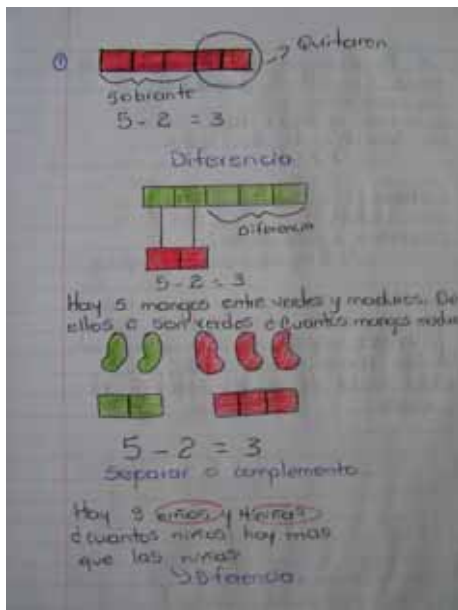 ① Quitaron
Sobrante
5 - 2 = 3
Diferencia
Diferencia
5 - 2 = 3
Hay 5 mangos entre verdes y maduros. De
ellos 2 son verdes ¿Cuantos mangos madu
5 - 2 = 3
Separar o complemento
Hay 9 niños y niñas
¿cuantos niños hay mas
que las niñas
Diferencia